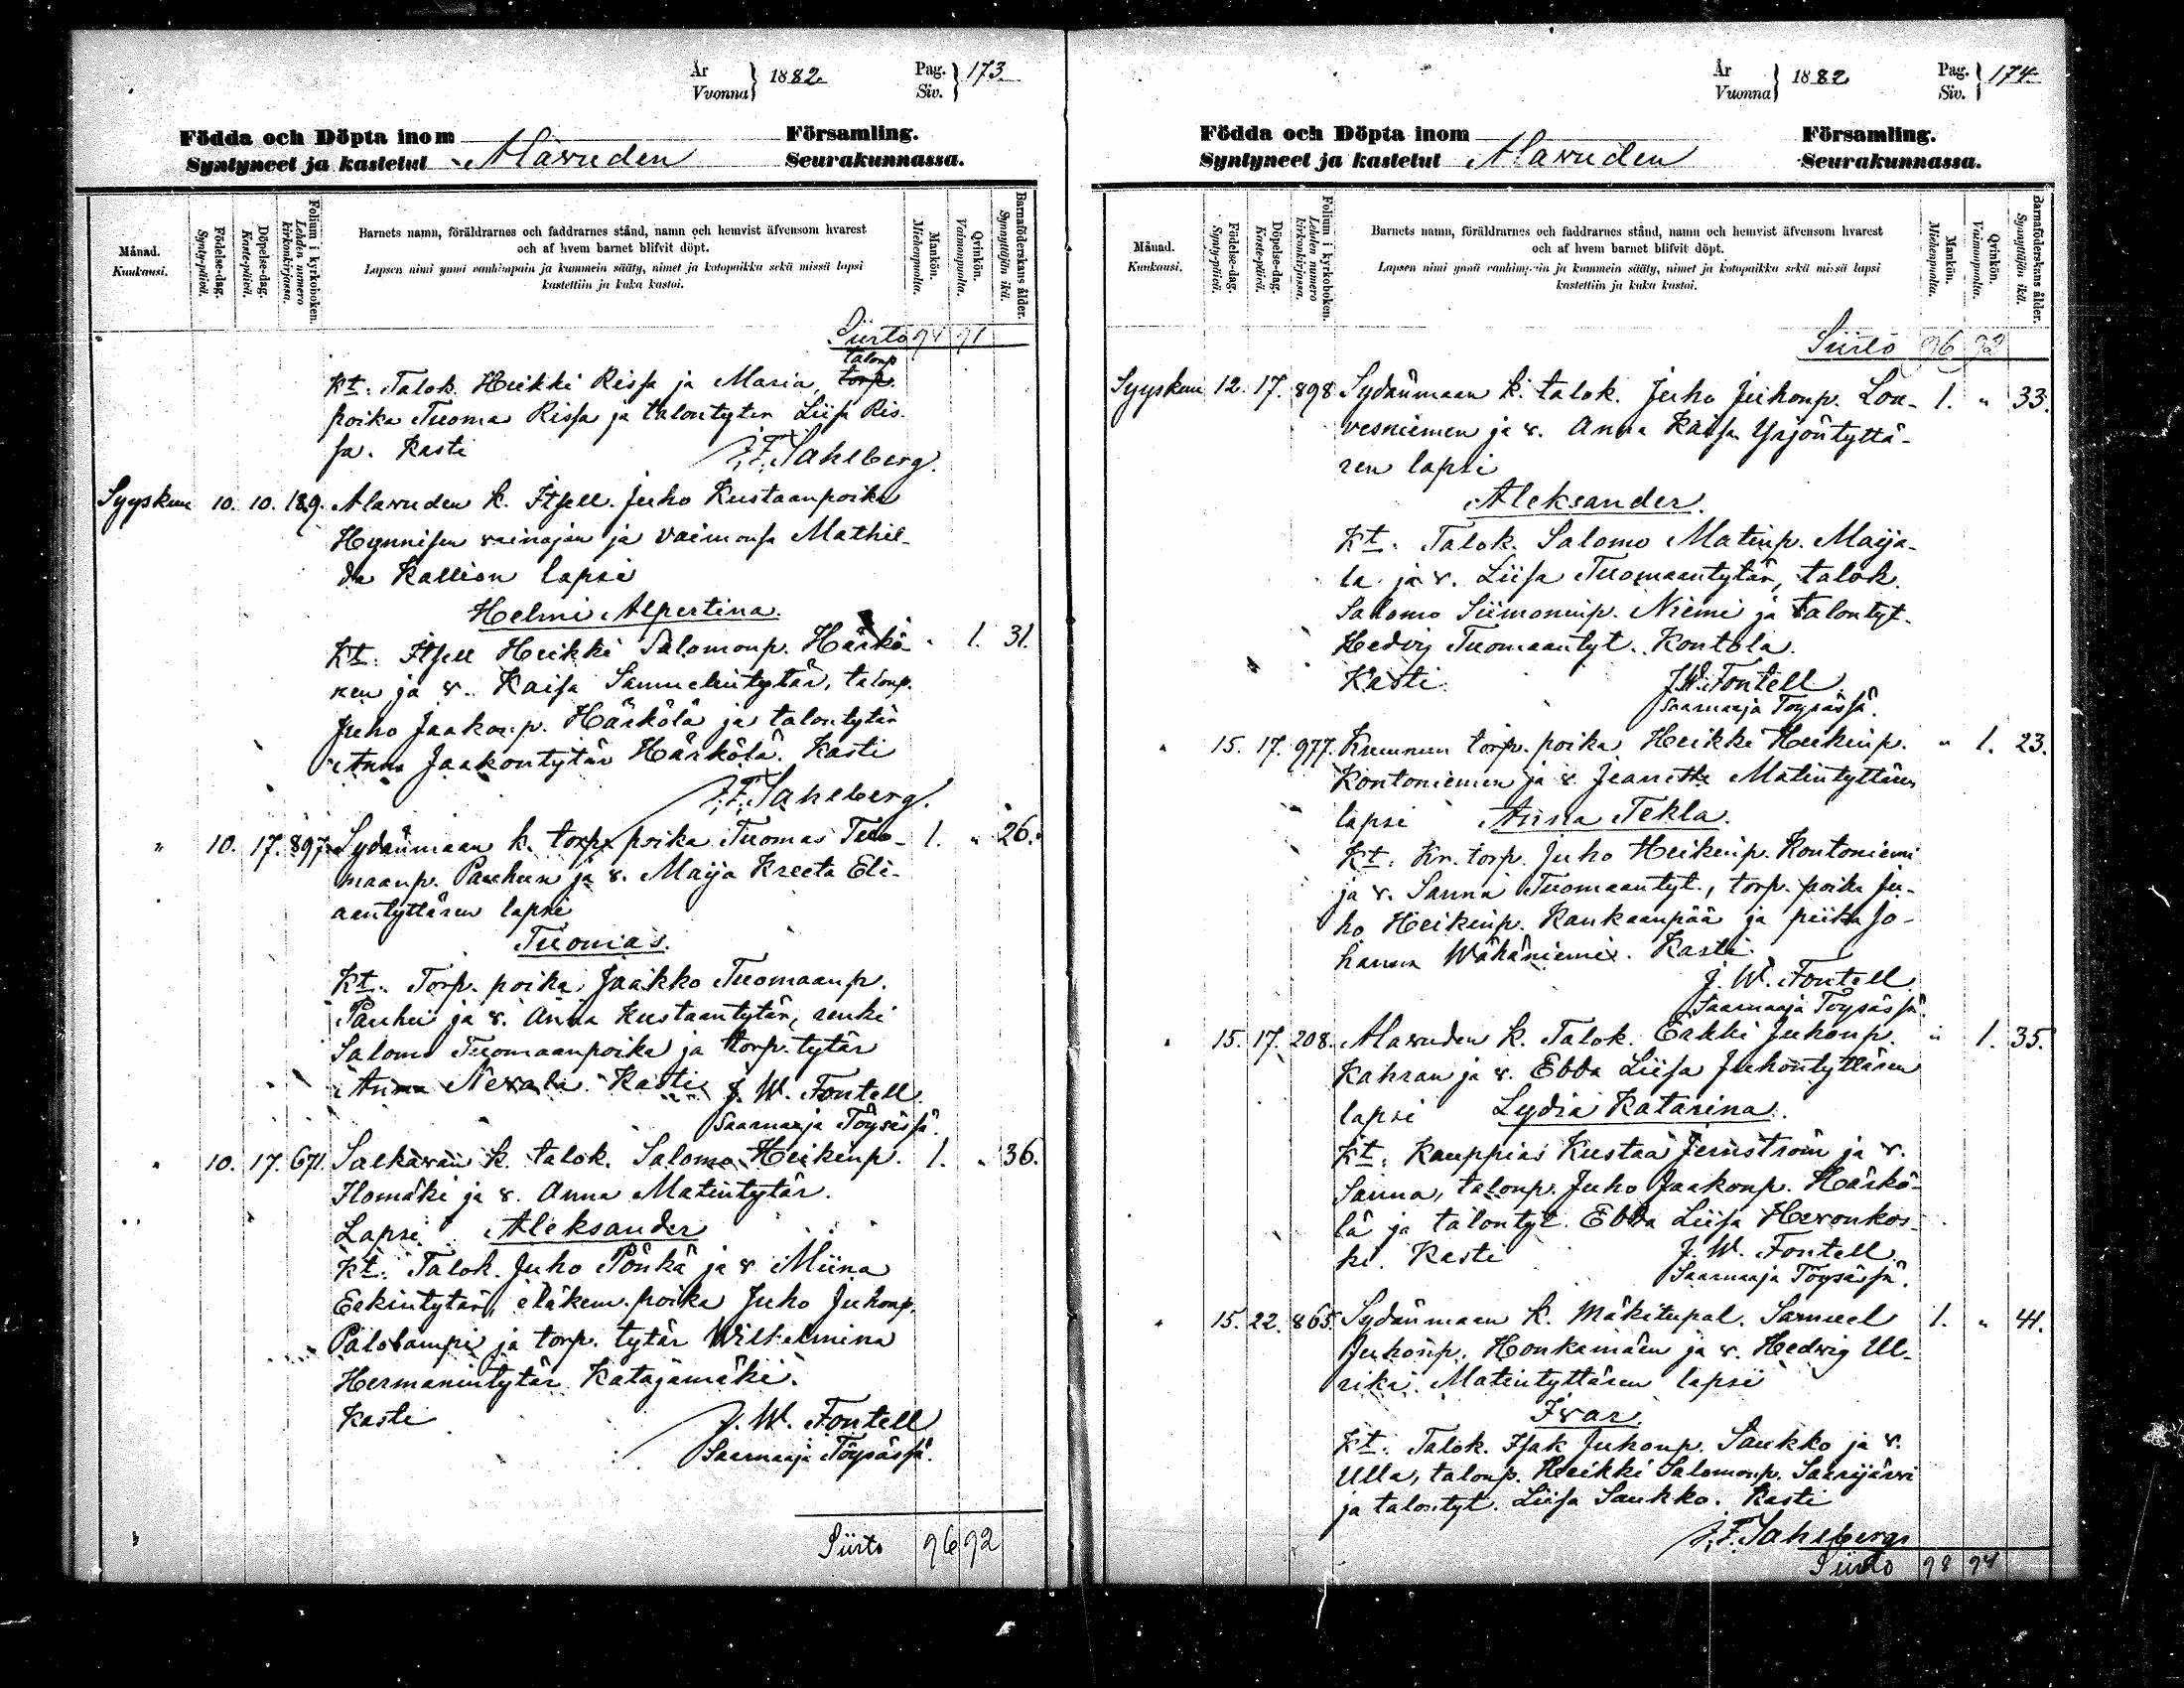 År
Vuonna } 1882.
Pag.
Siv. } 173
Födda och Döpta inom Församling.
Syntyneet ja kastetut Alavuden Seurakunnassa.
Månad.
Kuukausi.
Födelse-dag.
Synty-päivä.
Döpelse-dag.
Kaste-päivä.
Folium i kyrkoboken.
Lehden numero kirkonkirjassa.
Barnets namn, föräldrarnes och faddrarnes stånd, namn och hemvist äfvensom hvarest
och af hvem barnet blifvit döpt.
Lapsen nimi ynnä vanhimpain ja kummein sääty, nimet ja kotopaikka sekä missä lapsi
kastettiin ja kuka kastoi.
Mankön.
Miehenpuolta.
Qvinkön.
Vaimonpuolta.
Barnaföderskans ålder.
Synnyttäjän ikä.
Siirto 94 91
talonp
Kt: Talok. Heikki Rissa ja Maria, torp.
poika Tuomas Rissa ja talontytär Liisa Ris-
sa. Kasti J. F. Sahlberg.
Syyskuu 10. 10. 189. Alavuden k. Itsell. Juho Kustaanpoika
Hynnisen vainajan ja vaimonsa Mathil-
da Kallion lapsi
Helmi Alpertina.
Kt: Itsell Heikki Salomonp. Härkö- " 1. 31.
nen ja v. Kaisa Samuelintytär, talonp.
Juho Jaakonp. Härkölä ja talontytär
Anna Jaakontytär Härkölä. Kasti
J. F. Sahlberg.
" 10. 17. 897. Sydänmaan k. torp. poika Tuomas Tuo- 1. " 26.
maanp. Pauhun ja v. Maija Kreeta Eli-
aantyttären lapsi
Tuomas.
Kt: Torp. poika Jaakko Tuomaanp.
Pauhu ja v. Anna Kustaantytär, renki
Salomo Tuomaanpoika ja torp. tytär
Anna Nevala. Kasti J. W. Fontell
Saarnaaja Töysässä.
" 10. 17. 671. Salkavan k. talok. Salomo Heikinp. 1. " 36.
Ilomäki ja v. Anna Matintytär.
Lapsi Aleksander
Kt: Talok. Juho Pönkä ja v. Miina
Erkintytär, eläkem. poika Juho Juhonp.
Palolampi ja torp. tytär Wilhelmina
Hermanintytär Katajamäki.
Kasti J. W. Fontell
Saarnaaja Töysässä.
Siirto 96 92
År
Vuonna } 1882
Pag.
Siv. } 174
Födda och Döpta inom Församling.
Syntyneet ja kastetut Alavuden Seurakunnassa.
Månad.
Kuukausi.
Födelse-dag.
Synty-päivä.
Döpelse-dag.
Kaste-päivä.
Folium i kyrkoboken.
Lehden numero kirkonkirjassa.
Barnets namn, föräldrarnes och faddrarnes stånd, namn och hemvist äfvensom hvarest
och af hvem barnet blifvit döpt.
Lapsen nimi ynnä vanhimpain ja kummein sääty, nimet ja kotopaikka sekä missä lapsi
kastettiin ja kuka kastoi.
Mankön.
Miehenpuolta.
Qvinkön.
Vaimonpuolta.
Barnaföderskans ålder.
Synnyttäjän ikä.
Siirto 96 92
Syyskuu 12. 17. 898 Sydänmaan k. talok. Juho Juhonp. Lou- 1. " 33.
vesniemen ja v. Anna Kaisa Yrjöntyttä-
ren lapsi
Aleksander.
Kt: Talok. Salomo Matinp. Maija-
la ja v. Liisa Tuomaantytär, talok.
Salomo Siimoninp. Niemi ja talontyt.
Hedvig Tuomaantyt. Kontola.
Kasti J. W. Fontell
Saarnaaja Töysässä.
" 15. 17. 977. torp. poika Heikki Heikinp. " 1. 23.
Kontoniemen ja v. Jeanette Matintyttären
lapsi Anna Tekla.
Kt: Kr. torp. Juho Heikinp. Kontoniemi
ja v. Sanna Tuomaantyt., torp. poika Ju-
ho Heikinp. Kankaanpää ja piika Jo-
hanna Wähäniemi. Kasti
J. W. Fontell
Saarnaaja Töysässä.
" 15. 17. 208. Alavuden k. Talok. Erkki Juhonp. " 1. 35.
Kahran ja v. Ebba Liisa Juhontyttären
lapsi Lydia Katarina.
Kt: Kauppias Kustaa Jernström ja v.
Sanna, talonp. Juho Jaakonp. Härkö-
lä ja talontyt. Ebba Liisa Heronkos-
ki. Kasti J. W. Fontell
Saarnaaja Töysässä.
" 15. 22. 865. Sydänmaan k. Mäkitupal. Samuel 1. " 41.
Juhonp. Honkamäen ja v. Hedvig Ul-
rika Matintyttären lapsi
Ivar.
Kt: Talok. Isak Juhonp. Saukko ja v.
Ulla, talonp. Heikki Salomonp. Saarijärvi
ja talontyt. Liisa Saukko. Kasti
J. F. Sahlberg
Siirto 98 94